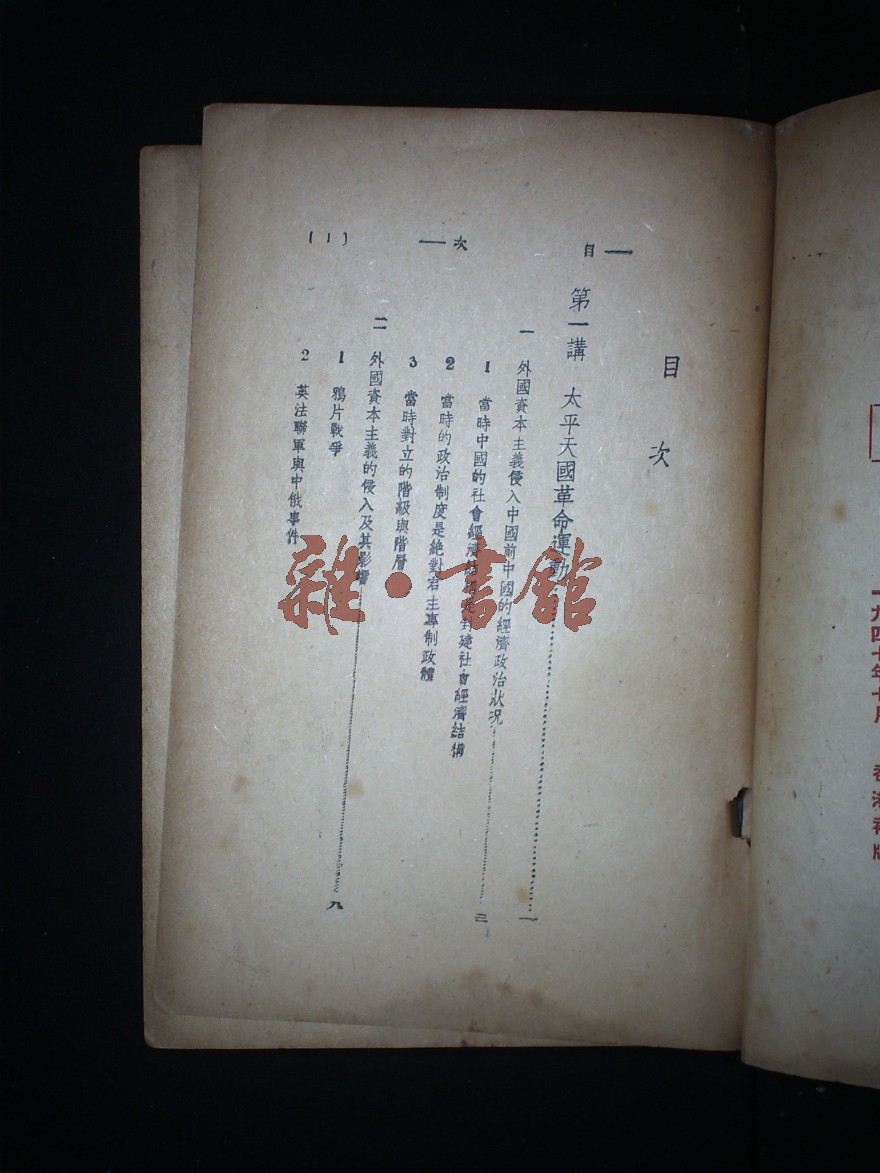 一九四七年十月 香港初版
目次
第一講 太平天國革命運動⋯⋯一
一 外國資本主義侵入中國前中國的經濟政治狀況⋯⋯三
1 當時中國的社會經濟結構是封建社會經濟結構
2 當時的政治制度是絕對君主專制政體
3 當時對立的階級與階層
二 外國資本主義的侵入及其影響⋯⋯九
1 鴉片戰爭
2 英法聯軍與中俄事件
目 —— 次 ——
〔1〕
雜·書館